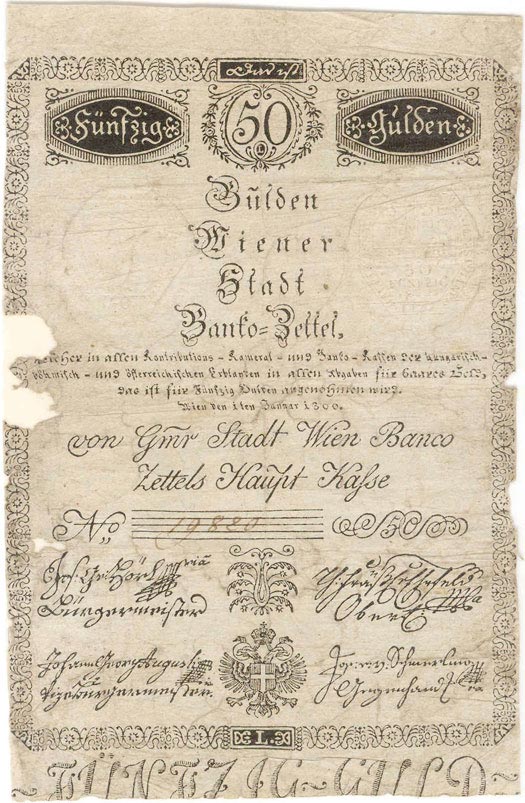 Das ist
Fünfzig 50 Gulden
L
Gulden
Wiener
Stadt
Banko=Zettel,
welcher in allen Kontributions - Kameral - und Banko - Kassen der hungarisch-
böhmisch - und österreichischen Erblanden in allen Abgaben für baares Geld,
das ist für Fünfzig Gulden angenohmen wird.
Wien den 1ten Januar 1800.
von Gmr Stadt Wien Banco
Zettels Haupt Kasse
No 19820 50
Bürgermeister Oberst
Johann Georg August
Vizebürgermeister Gegenhandl
L.
FÜNFZIG-GULD